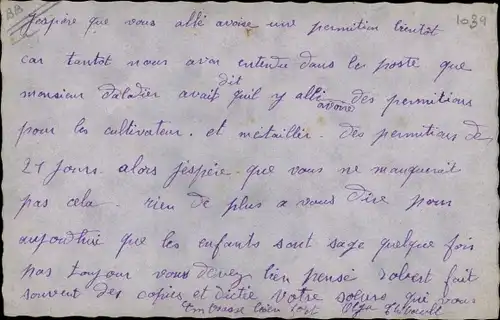 BB
1039
J'espère que vous allé avoire une permition bientôt
car tantôt nous avon entendu dans le poste que
monsieur Daladier avait dit qu'il y allé avoire des permitions
pour les cultivateur. et métaillier. des permitions de
21 jours. alors j'espère que vous ne manquerait
pas cela. rien de plus a vous dire pour
aujourd'hui que les enfants sont sage quelque fois
pas toujour vous devez bien pensé Robert fait
souvent des copies et dictée Votre soeure qui vous
embrasse bien fort Olga Thibault